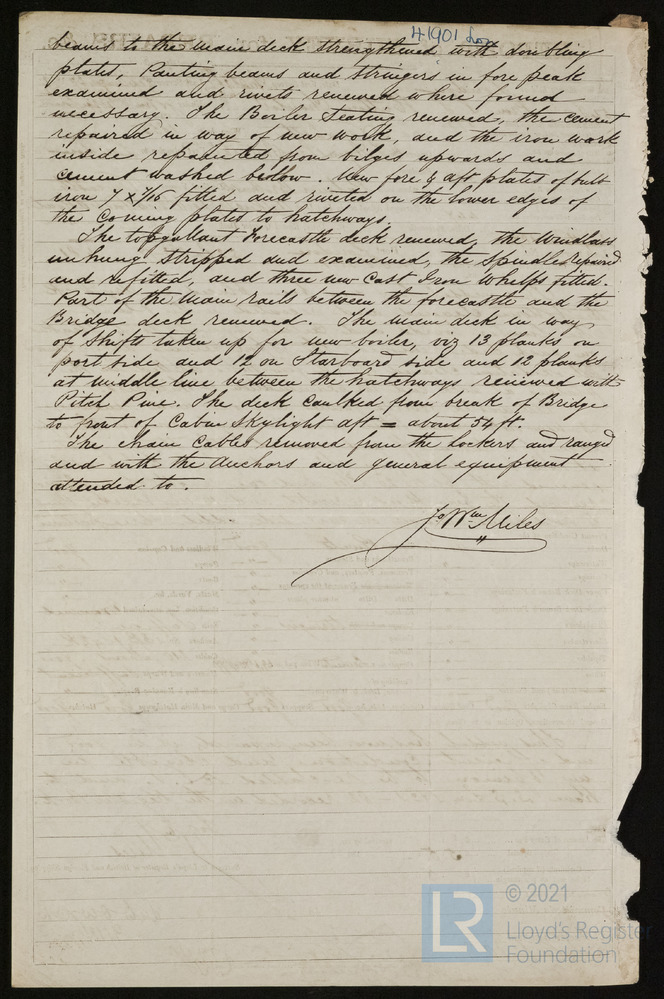 41901 Lon
beams to the main deck strengthened with doubling
plates, Panting beams and stringers in fore peak
examined and rivets renewed where found
necessary. The Boiler Seating renewed, the cement
repaired in way of new work, and the iron work
inside repainted from bilges upwards and
cement washed bedlow. New fore & aft plates of bulb
iron 7 x 7/16 fitted and riveted on the lower edges of
the coming plates to hatchways.
The topgallant Forecastle deck renewed, the Windlass
unhung, stripped and examined, the spindles repaired
and refitted, and three new Cast Iron Whelps fitted.
Part of the Main rails between the forecastle and the
Bridge deck renewed. The main deck in way
of Shifts taken up for new boiler, viz 13 planks on
port side and 12 on Starboard side and 12 planks
at middle line between the hatchways renewed with
Pitch Pine. The deck caulked from break of Bridge
to front of Cabin Skylight aft = about 54 ft.
The chain Cables removed from the lockers and ranged
and with the Anchors and general equipment
attended to.
Jo Wm Miles
LR
© 2021
Lloyd's Register
Foundation